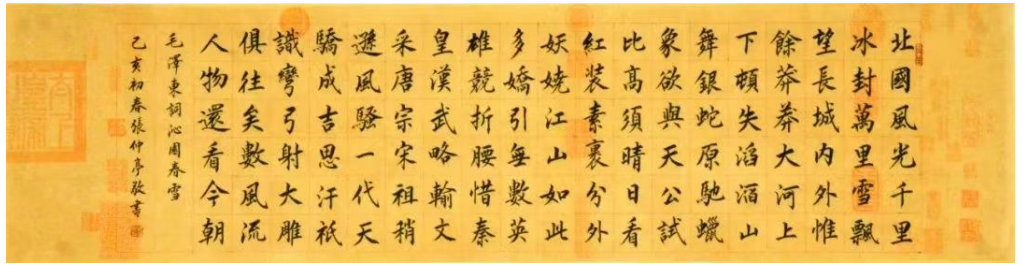 北國風光千里
冰封萬里雪飄
望長城內外惟
餘莽莽大河上
下頓失滔滔山
舞銀蛇原馳蠟
象欲與天公試
比高須晴日看
紅装素裹分外
妖嬈江山如此
多嬌引無數英
雄競折腰惜秦
皇漢武略輸文
采唐宗宋祖稍
遜風騷一代天
驕成吉思汗祇
識彎弓射大雕
俱往矣數風流
人物還看今朝
毛澤東詞沁園春雪
己亥初春張仲亭敬書